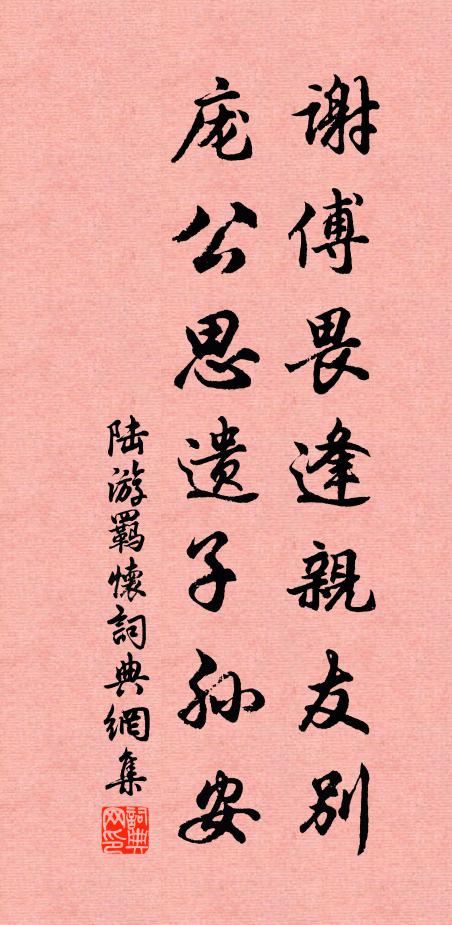 謝傅畏逢親友别
庞公思遗子孙安
陆游羁懷詞典網集
詞典网印